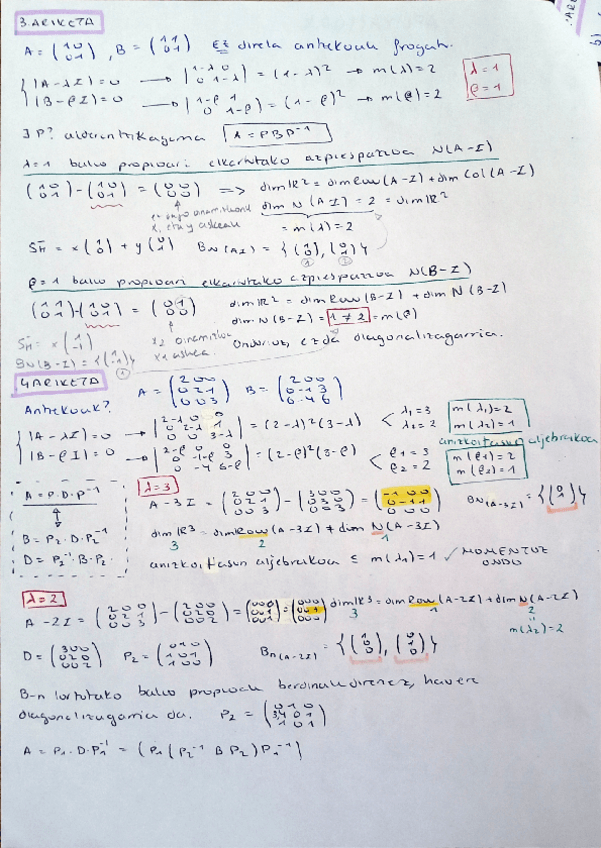 3. ARIKETA
A = (1 0 / 0 1), B = (1 1 / 0 1) Ez direla antzekoak frogatu.
{ |A-λI| = 0 → |1-λ 0 / 0 1-λ| = (1-λ)² → m(λ) = 2
|B-ρI| = 0 → |1-ρ 1 / 0 1-ρ| = (1-ρ)² → m(ρ) = 2
λ = 1
ρ = 1
∃ P? alderantzikagarria A = PBP⁻¹
λ=1 balio propioari elkartutako azpiespazioa N(A-I)
(1 0 / 0 1) - (1 0 / 0 1) = (0 0 / 0 0) => dim ℝ² = dim Row(A-I) + dim Col(A-I)
dim N(A-I) = 2 = dim ℝ²
= m(λ) = 2
x, eta y askeak
= x(1 / 0) + y(0 / 1) B N(A-I) = {(1 / 0), (0 / 1)}
ρ=1 balio propioari elkartutako azpiespazioa N(B-I)
(1 1 / 0 1) - (1 0 / 0 1) = (0 1 / 0 0) dim ℝ² = dim Row(B-I) + dim N(B-I)
dim N(B-I) = 1 ≠ 2 = m(ρ)
x₂ oinarrizkoa
x₁ askea
Ondorioz, ez da diagonalizagarria.
4 ARIKETA
A = (2 0 0 / 0 2 1 / 0 0 3) B = (2 0 0 / 0 -1 3 / 0 -4 6)
Antzekoak?
{ |A-λI| = 0 → |2-λ 0 0 / 0 2-λ 1 / 0 0 3-λ| = (2-λ)²(3-λ) < λ₁ = 3 λ₂ = 2
m(λ₁) = 2
m(λ₂) = 1
anizkoiztasun aljebraikoa
|B-ρI| = 0 → |2-ρ 0 0 / 0 -1-ρ 3 / 0 -4 6-ρ| = (2-ρ)²(3-ρ) < ρ₁ = 3 ρ₂ = 2
m(ρ₁) = 2
m(ρ₂) = 1
A = P·D·P⁻¹
B = P₂·D·P₂⁻¹
D = P₂⁻¹·B·P₂
λ=3
A-3I = (2 0 0 / 0 2 1 / 0 0 3) - (3 0 0 / 0 3 0 / 0 0 3) = (-1 0 0 / 0 -1 1 / 0 0 0)
dim ℝ³ = dim Row(A-3I) + dim N(A-3I)
3 2 1
anizkoiztasun aljebraikoa ≤ m(λ₁) = 1 ✓ MOMENTUZ ONDO
λ=2
A-2I = (2 0 0 / 0 2 1 / 0 0 3) - (2 0 0 / 0 2 0 / 0 0 2) = (0 0 0 / 0 0 1 / 0 0 1) = (0 0 0 / 0 0 1 / 0 0 0) dim ℝ³ = dim Row(A-2I) + dim N(A-2I)
3 1 2
m(λ₂) = 2
D = (3 0 0 / 0 2 0 / 0 0 2) P₂ = (0 1 0 / 1 0 1 / 1 0 0) B N(A-2I) = {(1 / 0 / 0), (0 / 1 / 0)}
B-n lortutako balio propioak berdinak direnez, hau ere
diagonalizagarria da.
A = P₁·D·P₁⁻¹ = (P₁(P₂⁻¹ B P₂)P₁⁻¹)